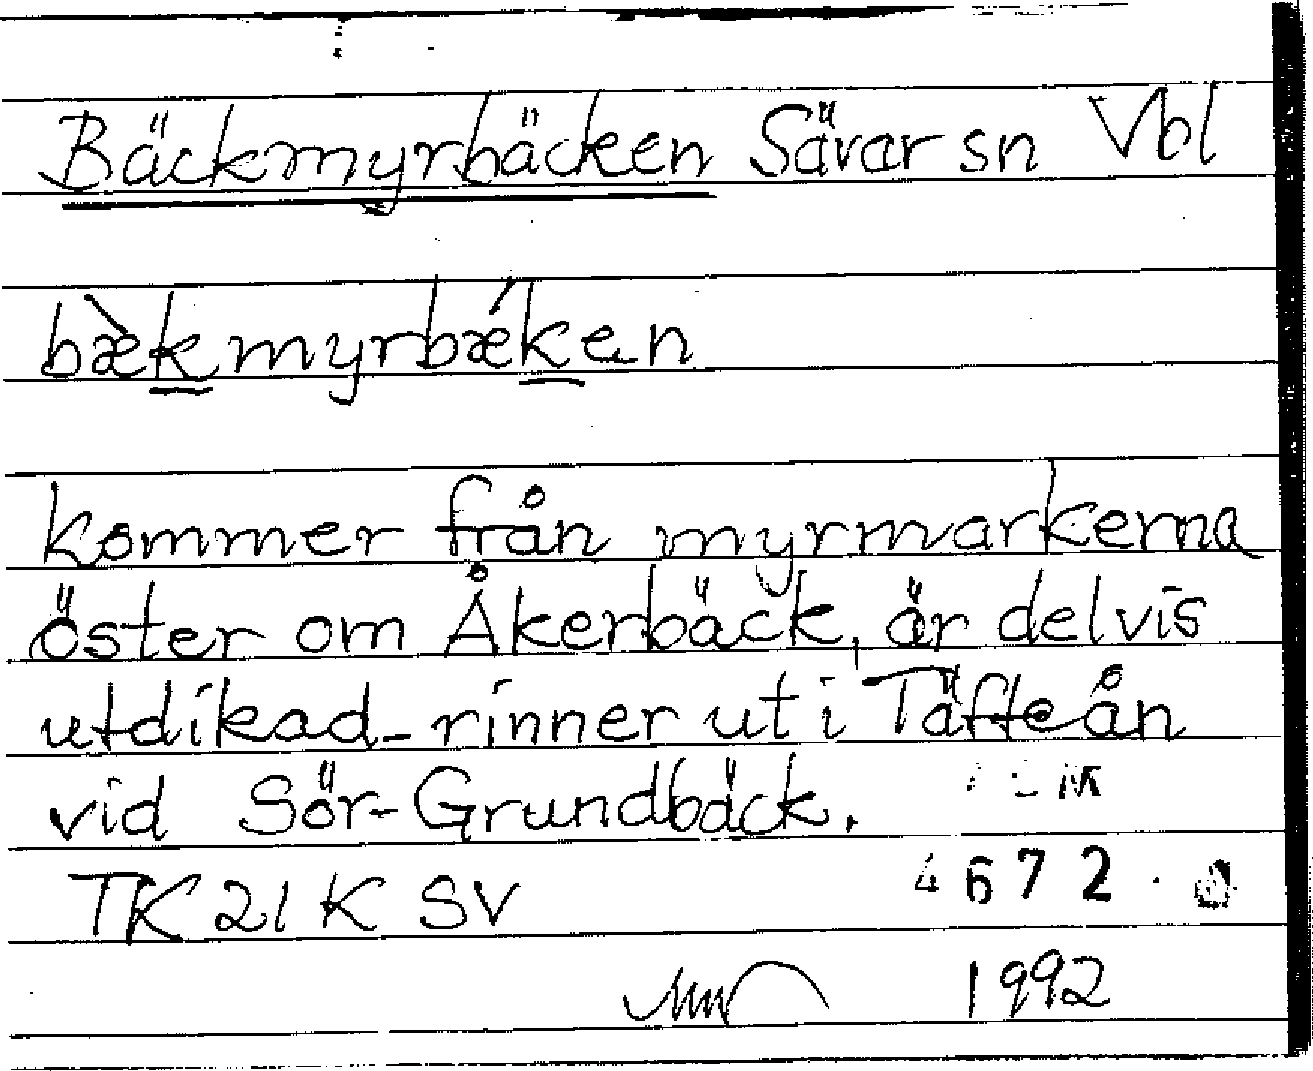 Bäckmyrbäcken Sävar sn Vbl
bæ̀kmyrbǽken
kommer från myrmarkerna
öster om Åkerbäck, är delvis
utdikad - rinner ut i Täfteån
vid Sör-Grundbäck.
4672
TK 21 K SV
1992